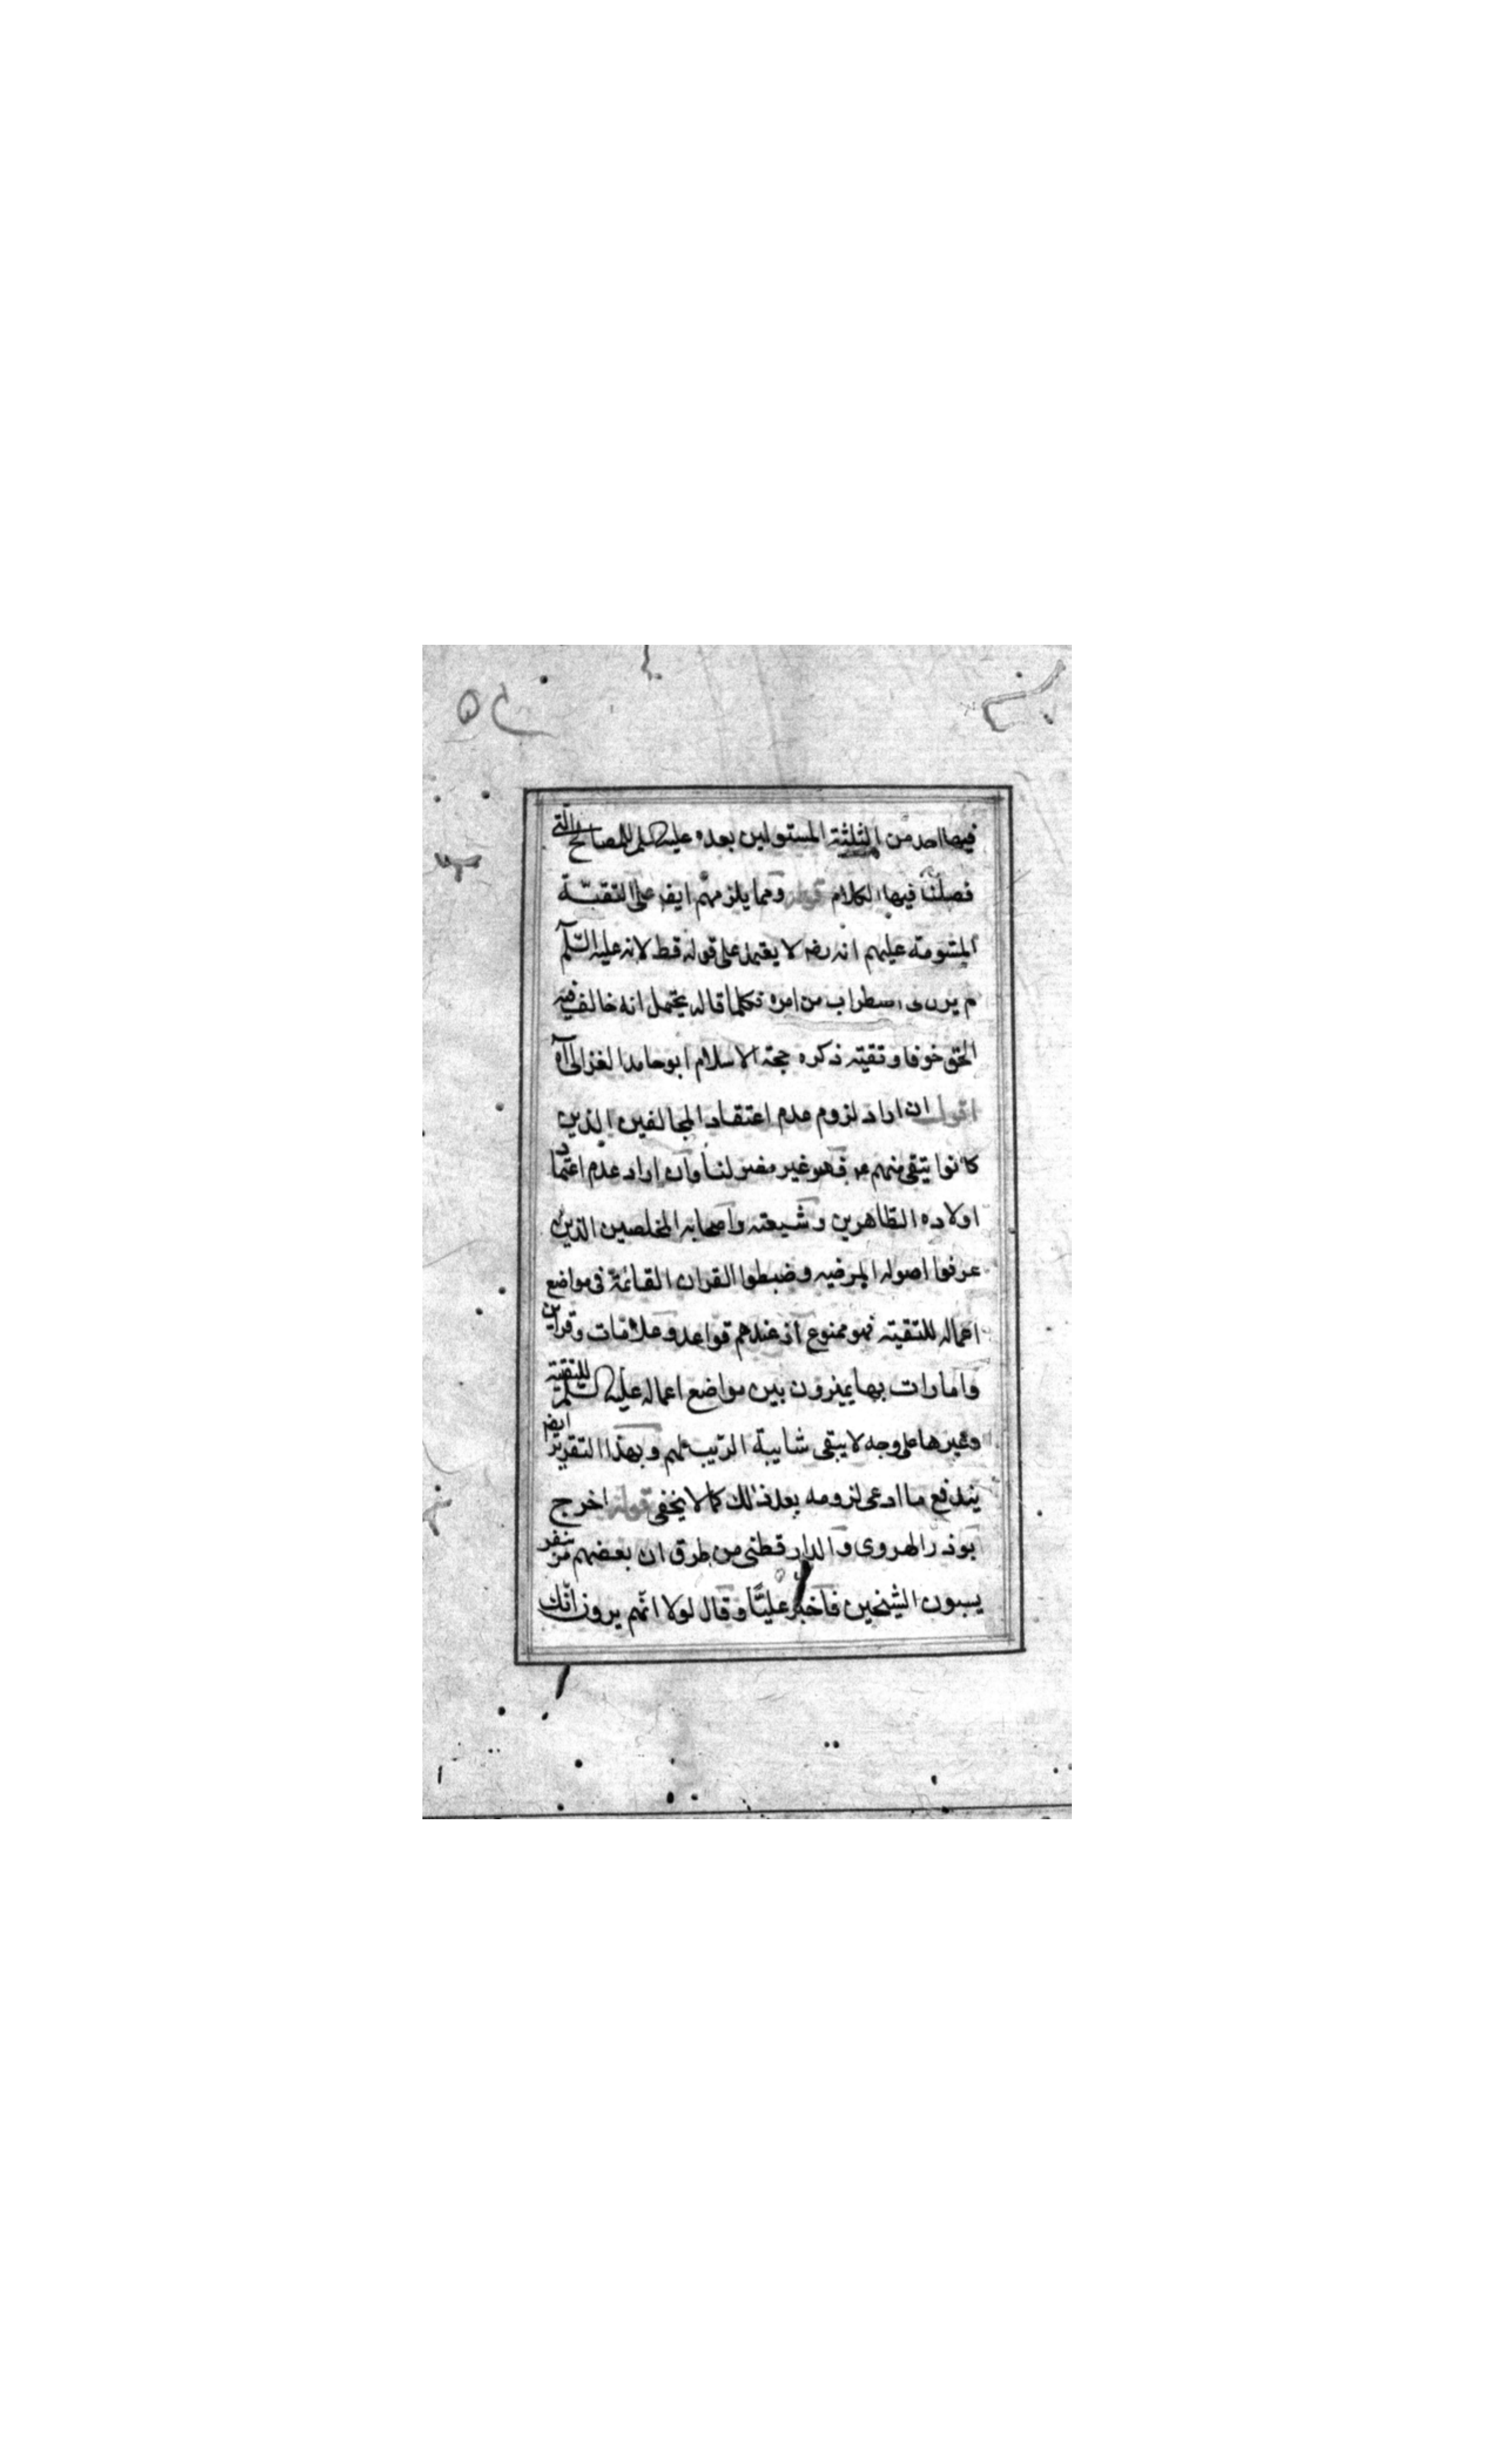 فيها احد من الثلثة المستولين بعده عليه السلم للمصالح التى
فصلنا فيها الكلام قوله ومما يلزمهم ايض على التقية
المشومة عليهم انه رضه لا يعتمد على قوله قط لانه عليه السلم
لم يزل فى اضطراب من امره فكلما قاله يحتمل انه خالف فيه
الحق خوفا وتقية ذكره حجة الاسلام ابو حامد الغزالى اه
اقول ان اراد لزوم عدم اعتقاد المخالفين الذين
كانوا يتقى منهم فهو غير مضر لنا وان اراد عدم اعتماد
اولاده الطاهرين وشيعته واصحابه المخلصين الذين
عرفوا اصوله المرضيه وضبطوا القران القائمة فى مواضع
اعماله للتقية فهو ممنوع اذ عندهم قواعد وعلامات وقراين
وامارات بها يميزون بين مواضع اعماله عليه السلم للتقية
وغيرها على وجه لا يبقى شايبة الريب لهم وبهذا التقرير ايض
يندفع ما ادعى لزومه بعد ذلك كما لا يخفى قوله اخرج
ابو ذر الهروى والدارقطنى من طرق ان بعضهم مر بنفر
يسبون الشيخين فاخبر عليّا وقال لولا انهم يرون انك